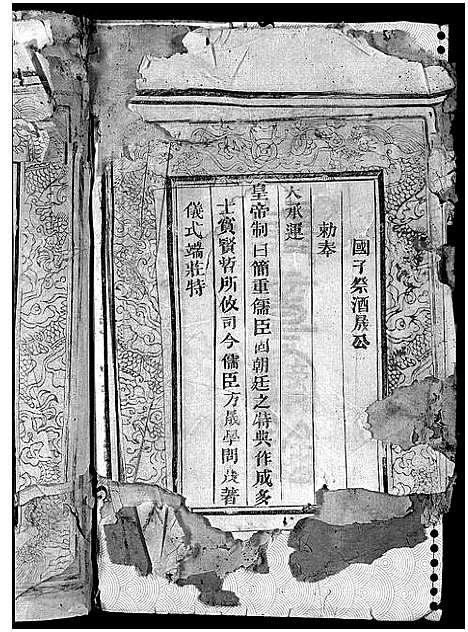 國子祭酒晟公
勅奉
天承運
皇帝制曰簡重儒臣固朝廷之特典作成多
士實賢哲所攸司今儒臣方晟學問茂著
儀式端莊特